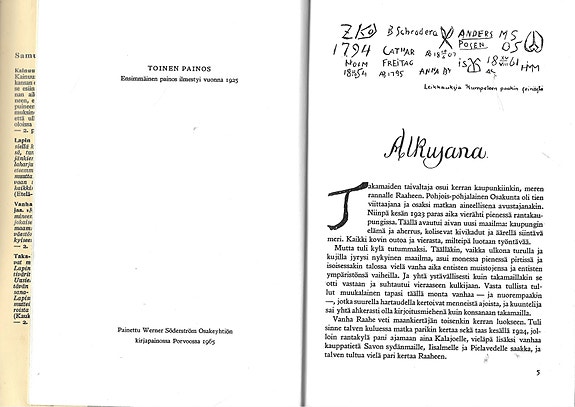 Samu
Kainuu
Kainuu
kansan
se esiin
nan aik
neen, e
puineen
muksin
että ull
oloissa
Lapin
Vanha
Taka-
TOINEN PAINOS
Ensimmäinen painos ilmestyi vuonna 1925
Painettu Werner Söderström Osakeyhtiön
kirjapainossa Porvoossa 1965
B Schrodera ANDERS MS
1794 CATHAR POSEN 05
HOLM FREITAG is 1861 HMM
1854 1795 ANNA
Leikkauksia Kumpeleen puukin seinästä
Alkujana.
Jakamaiden taivaltaja osui kerran kaupunkiinkin, meren
rannalle Raaheen. Pohjois-pohjalainen Osakunta oli tien
viittaajana ja osaksi matkan aineellisena avustajanakin.
Niinpä kesän 1923 paras aika vierähti pienessä rantakau-
pungissa. Täällä avautui aivan uusi maailma: kaupungin
elämä ja aherrus, kolisevat kivikadut ja äärellä siintävä
meri. Kaikki kovin outoa ja vierasta, milteipä luotaan työntävää.
Mutta tuli kylä tutummaksi. Täälläkin, vaikka ulkona turulla ja
kujilla jyrysi nykyinen maailma, asui monessa pienessä pirtissä ja
isoisessakin talossa vielä vanha aika entisten muistojensa ja entisten
ympäristömä vaiheilla. Ja yhtä ystävällisesti kuin takamaillakin se
otti vastaan ja suhtautui vieraaseen kulkijaan. Vasta tullista tul-
lut muukalainen tapasi täällä monta vanhaa — ja nuorempaakin
—, jotka suurella hartaudella kertoivat menneistä ajoista, ja kuuntelija
sai yhtä ahkerasti olla kirjoitusmiehenä kuin konsanaan takamailla.
Vanha Raahe veti maankiertäjän toisenkin kerran luokseen. Tuli
sinne talven kuluessa matka parikin kertaa sekä taas kesällä 1924, jol-
loin rantakylä pani ajamaan aina Kalajoelle, vieläpä lisäksi vanhaa
kauppatietä Savon sydänmaille, Iisalmelle ja Pielavedelle saakka, ja
talven tultua vielä pari kertaa Raaheen.
5